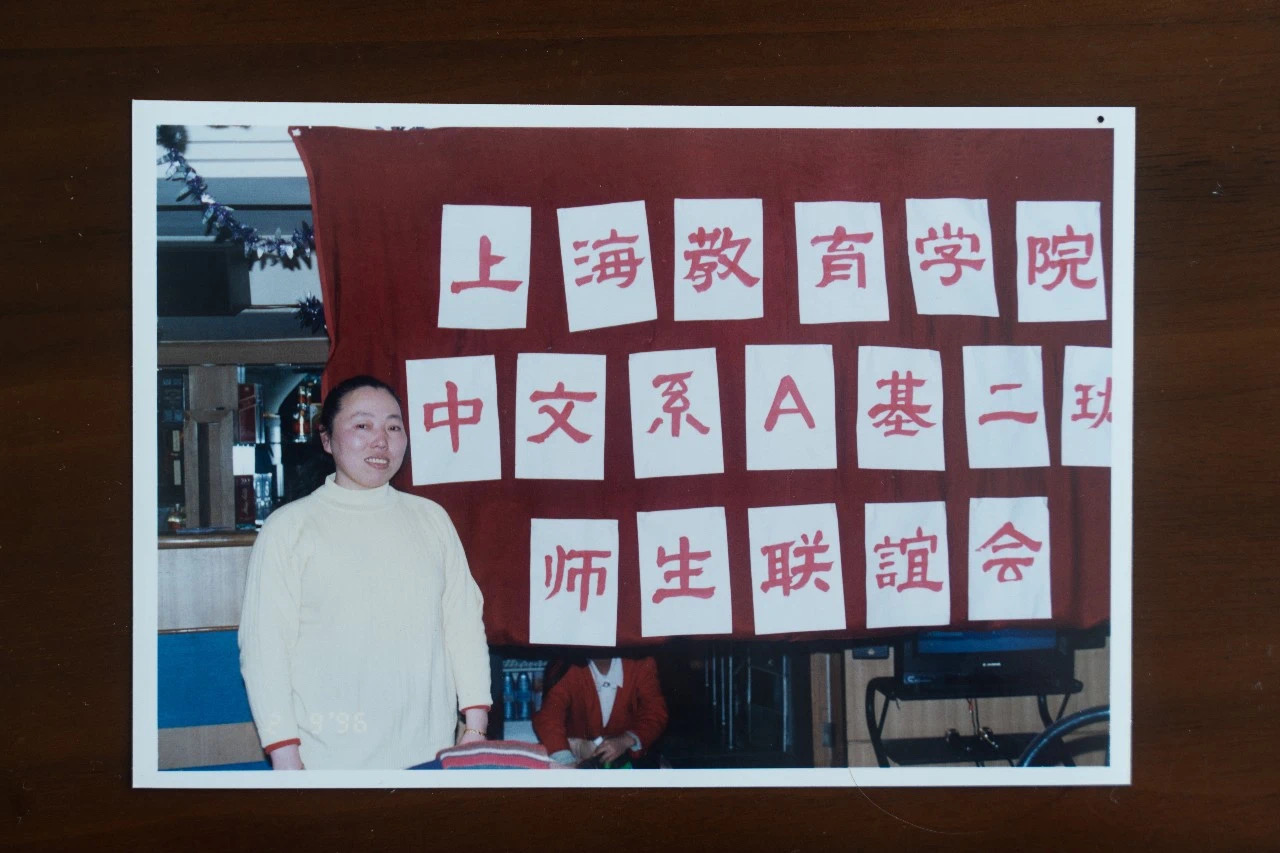 上海教育学院
中文系A基二班
师生联誼会
2 9'96